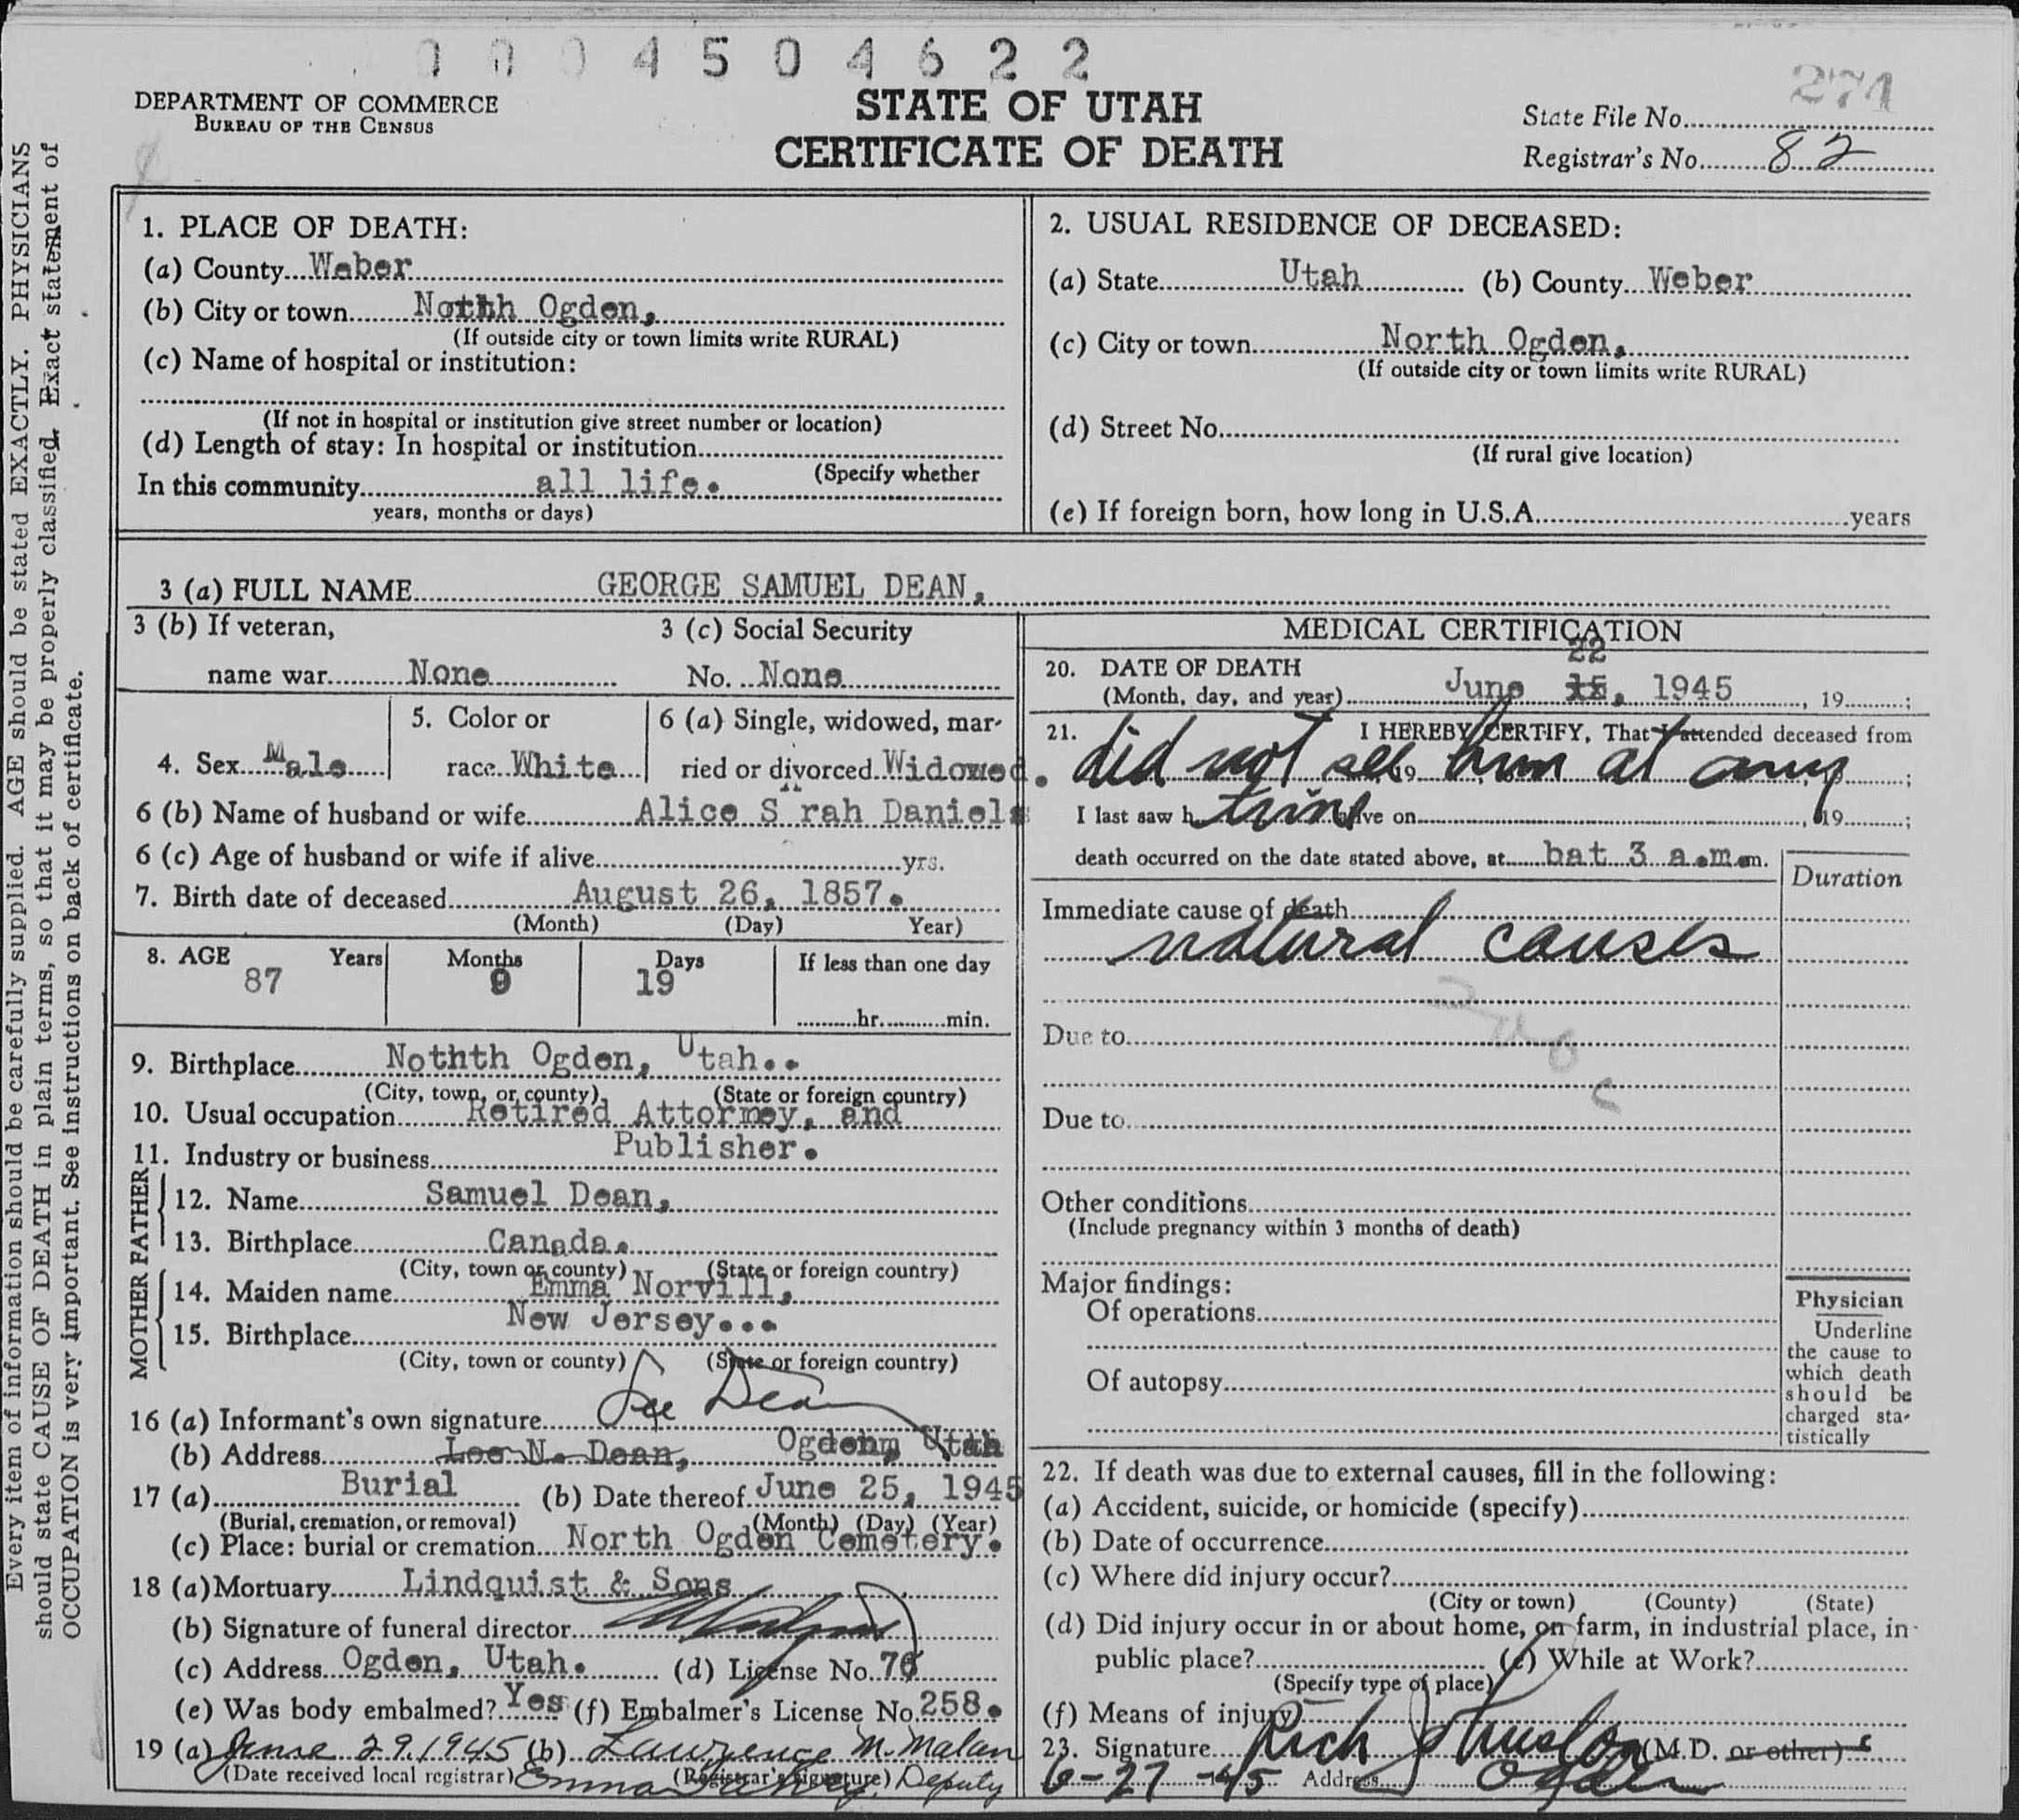 0004504622
274
DEPARTMENT OF COMMERCE
BUREAU OF THE CENSUS
STATE OF UTAH
CERTIFICATE OF DEATH
State File No.
Registrar's No. 82
Every item of information should be carefully supplied. AGE should be stated EXACTLY. PHYSICIANS
should state CAUSE OF DEATH in plain terms, so that it may be properly classified. Exact statement of
OCCUPATION is very important. See instructions on back of certificate.
1. PLACE OF DEATH:
(a) County Weber
(b) City or town Notth Ogden,
(If outside city or town limits write RURAL)
(c) Name of hospital or institution:
(If not in hospital or institution give street number or location)
(d) Length of stay: In hospital or institution
(Specify whether
In this community all life.
years, months or days)
2. USUAL RESIDENCE OF DECEASED:
(a) State Utah (b) County Weber
(c) City or town North Ogden,
(If outside city or town limits write RURAL)
(d) Street No.
(If rural give location)
(e) If foreign born, how long in U.S.A. years
3 (a) FULL NAME GEORGE SAMUEL DEAN,
3 (b) If veteran, 3 (c) Social Security
name war None No. None
4. Sex Male
5. Color or
race White
6 (a) Single, widowed, mar-
ried or divorced Widowed.
6 (b) Name of husband or wife Alice S rah Daniels
6 (c) Age of husband or wife if alive yrs.
7. Birth date of deceased August 26, 1857.
(Month) (Day) Year)
8. AGE Years Months Days If less than one day
87 9 19
hr. min.
9. Birthplace Nothth Ogden, Utah..
(City, town, or county) (State or foreign country)
10. Usual occupation Retired Attorney, and
11. Industry or business Publisher.
FATHER
12. Name Samuel Dean,
13. Birthplace Canada.
(City, town or county) (State or foreign country)
MOTHER
14. Maiden name Emma Norvill,
15. Birthplace New Jersey...
(City, town or county) (State or foreign country)
16 (a) Informant's own signature Lee Dean
(b) Address Lee N. Dean, Ogden, Utah
17 (a) Burial (b) Date thereof June 25, 1945
(Burial, cremation, or removal) (Month) (Day) (Year)
(c) Place: burial or cremation North Ogden Cemetery.
18 (a) Mortuary Lindquist & Sons
(b) Signature of funeral director
(c) Address Ogden, Utah. (d) License No. 76
(e) Was body embalmed? Yes (f) Embalmer's License No. 258.
19 (a) June 29, 1945 (b) Lawrence M. Malan
(Date received local registrar) (Registrar's signature)
Emma Deputy
MEDICAL CERTIFICATION
22
20. DATE OF DEATH
(Month, day, and year) June 15, 1945, 19 ;
21. I HEREBY CERTIFY, That I attended deceased from
did not see him at any
, 19 ;
time
I last saw h alive on , 19 ;
death occurred on the date stated above, at bat 3 a.m. m.
Duration
Immediate cause of death
natural causes
200 c
Due to
Due to
Other conditions
(Include pregnancy within 3 months of death)
Major findings:
Of operations
Of autopsy
Physician
Underline
the cause to
which death
should be
charged sta-
tistically
22. If death was due to external causes, fill in the following:
(a) Accident, suicide, or homicide (specify)
(b) Date of occurrence
(c) Where did injury occur?
(City or town) (County) (State)
(d) Did injury occur in or about home, on farm, in industrial place, in
public place? (e) While at Work?
(Specify type of place)
(f) Means of injury
23. Signature Rich Johnston (M.D. or other)
6-27-45 Address Ogden